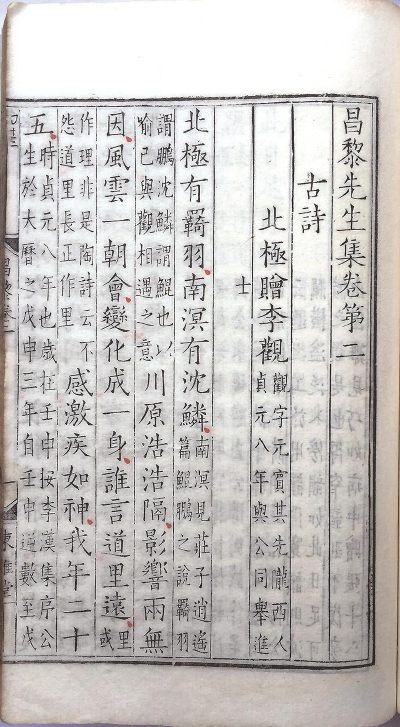 昌黎先生集卷第二
古詩
北極贈李觀觀字元賓其先隴西人貞元八年與公同舉進
士
北極有羇羽南溟有沈鱗南溟見莊子逍遙篇鯤鵬之說羇羽
謂鵬沈鱗謂鯤也以喻已與觀相遇之意川原浩浩隔影響兩無
因風雲一朝會變化成一身誰言道里遠或里
作理非是陶詩云不怨道里長正作里感激疾如神我年二十
五時貞元八年也歲在壬申按李漢集序公生於大曆之戊申三年自壬申逆數至戊
東雅堂